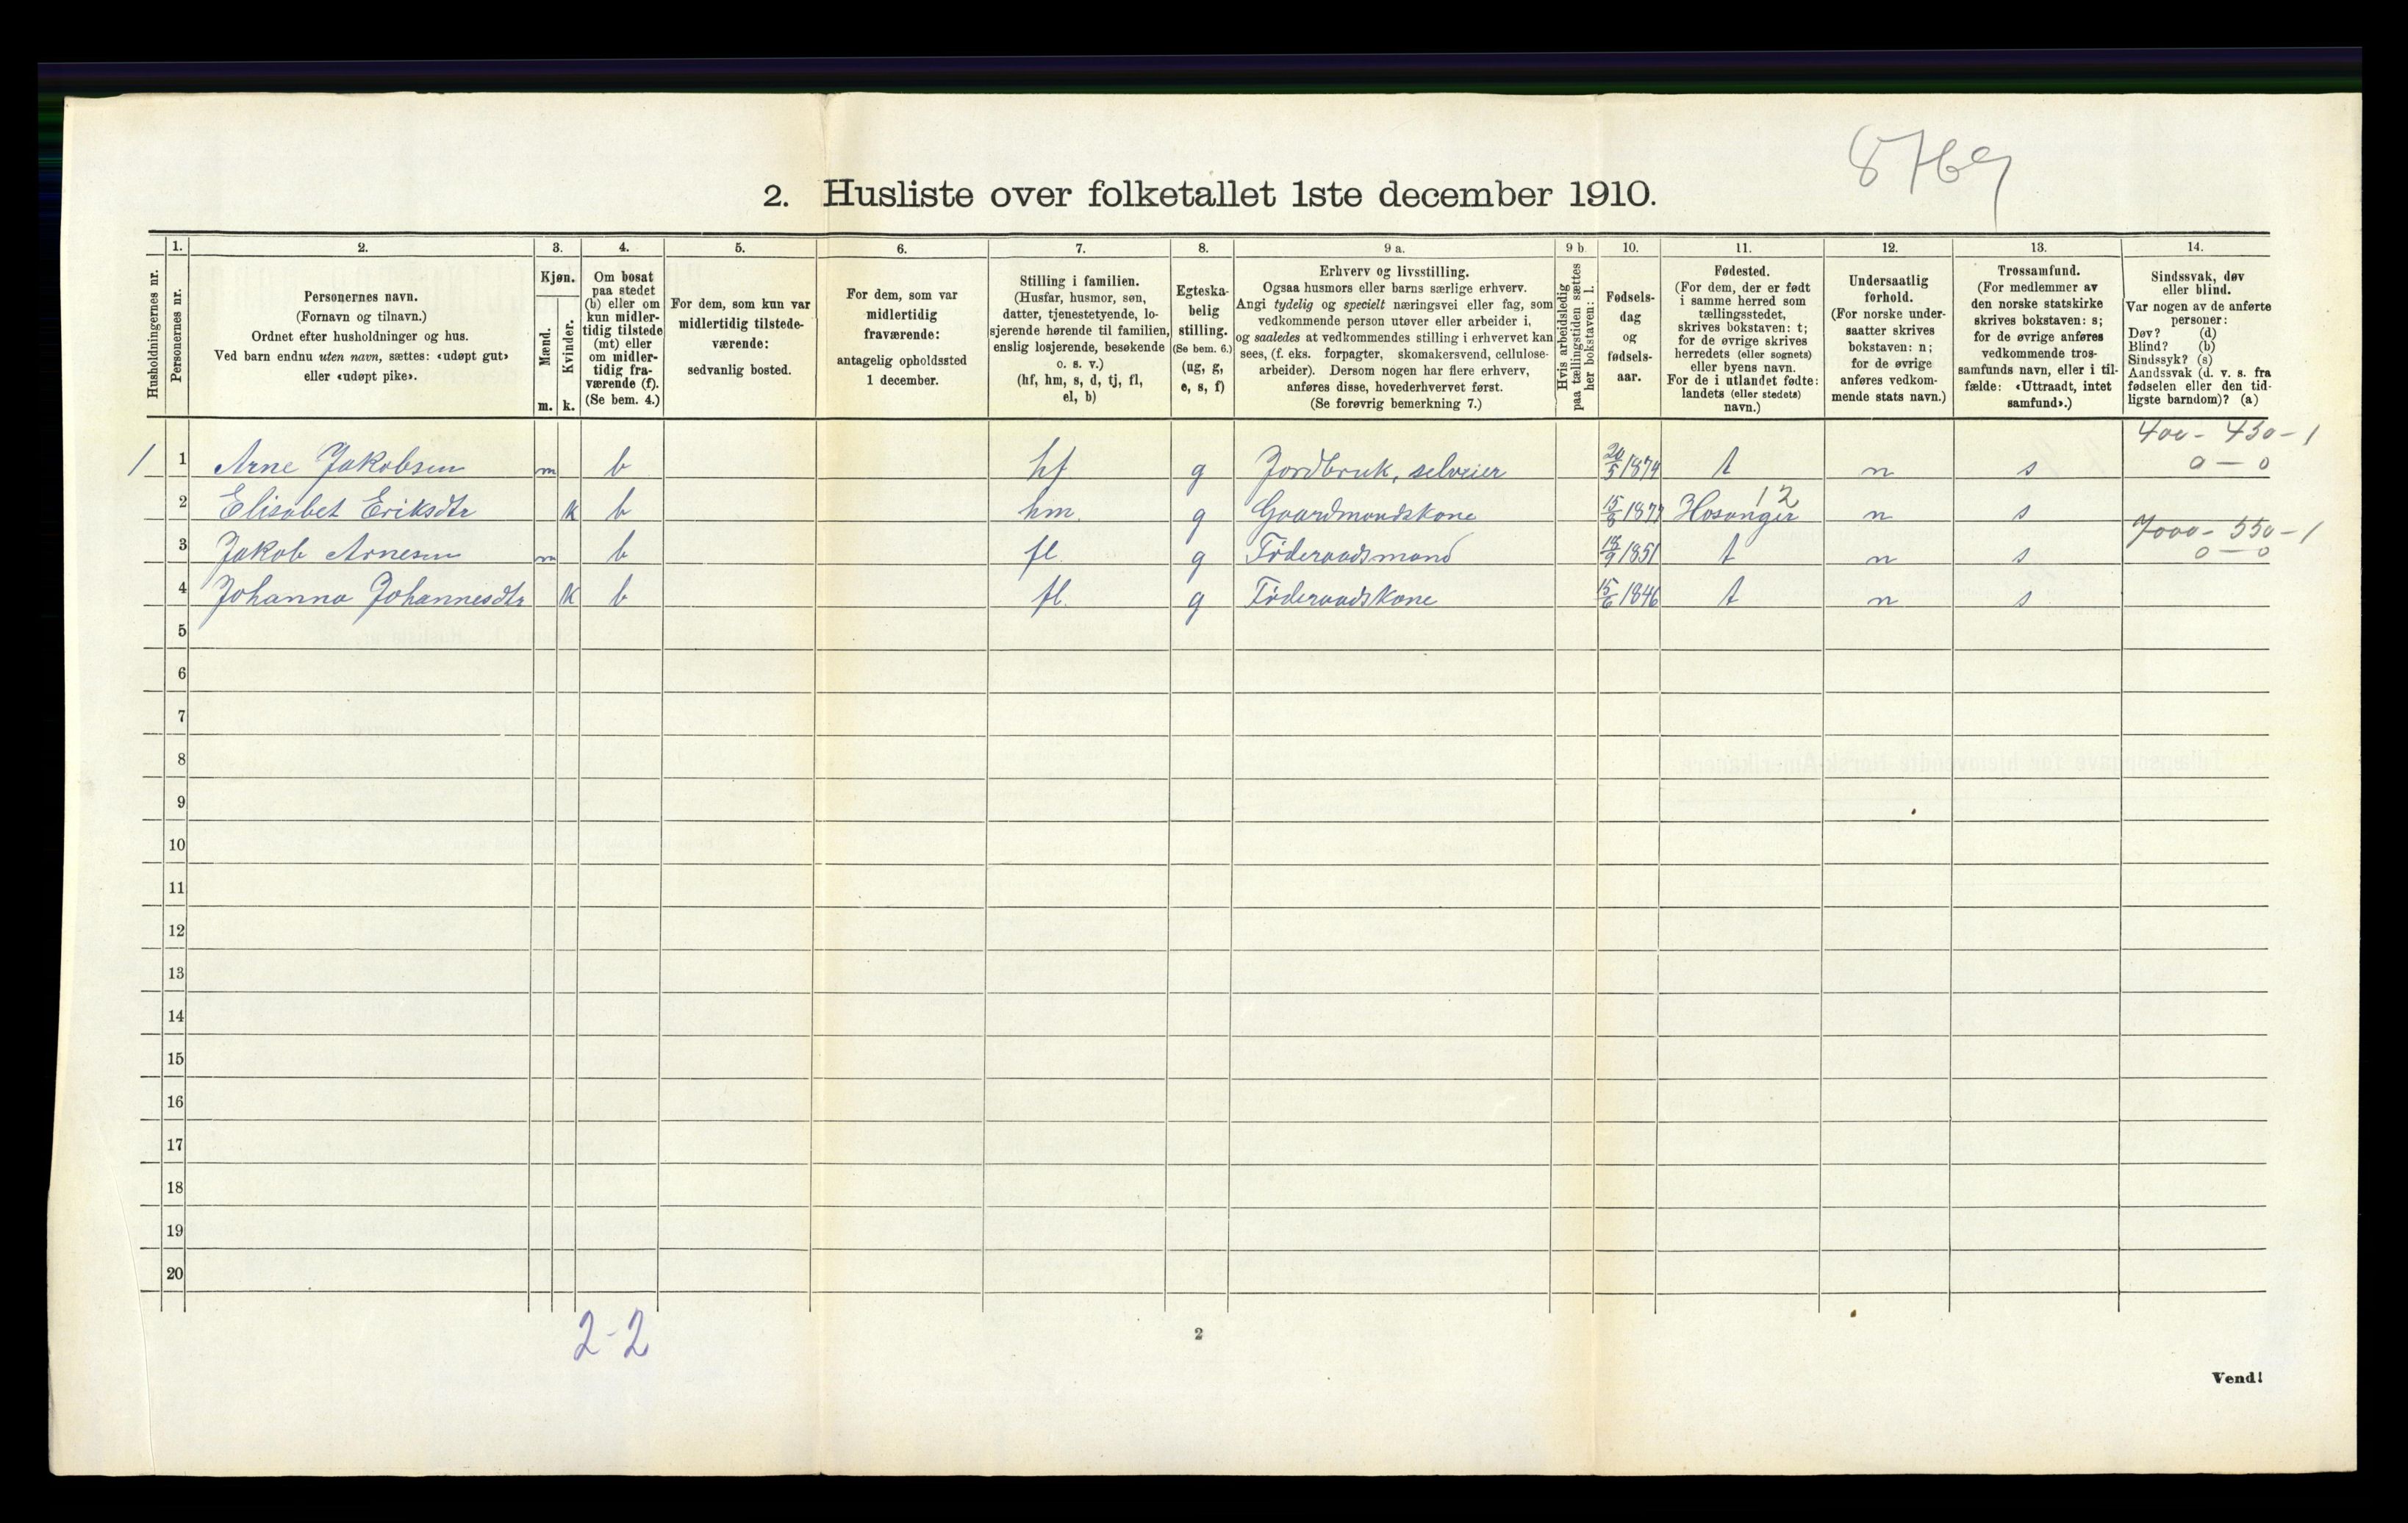 8769
2. Husliste over folketallet 1ste december 1910.
Husholdningernes nr.
1.
Personernes nr.
2.
Personernes navn.
(Fornavn og tilnavn.)
Ordnet efter husholdninger og hus.
Ved barn endnu uten navn, sættes: «udøpt gut»
eller «udøpt pike».
3.
Kjøn.
Mænd.
Kvinder.
m. k.
4.
Om bosat
paa stedet
(b) eller om
kun midler-
tidig tilstede
(mt) eller
om midler-
tidig fra-
værende (f).
(Se bem. 4.)
5.
For dem, som kun var
midlertidig tilstede-
værende:
sedvanlig bosted.
6.
For dem, som var
midlertidig
fraværende:
antagelig opholdssted
1 december.
7.
Stilling i familien.
(Husfar, husmor, søn,
datter, tjenestetyende, lo-
sjerende hørende til familien,
enslig losjerende, besøkende
o. s. v.)
(hf, hm, s, d, tj, fl,
el, b)
8.
Egteska-
belig
stilling.
(Se bem. 6.)
(ug, g,
e, s, f)
9 a.
Erhverv og livsstilling.
Ogsaa husmors eller barns særlige erhverv.
Angi tydelig og specielt næringsvei eller fag, som
vedkommende person utøver eller arbeider i,
og saaledes at vedkommendes stilling i erhvervet kan
sees, (f. eks. forpagter, skomakersvend, cellulose-
arbeider). Dersom nogen har flere erhverv,
anføres disse, hovederhvervet først.
(Se forøvrig bemerkning 7.)
9 b.
Hvis arbeidsledig
paa tællingstiden sættes
her bokstaven: l.
10.
Fødsels-
dag
og
fødsels-
aar.
11.
Fødested.
(For dem, der er født
i samme herred som
tællingsstedet,
skrives bokstaven: t;
for de øvrige skrives
herredets (eller sognets)
eller byens navn.
For de i utlandet fødte:
landets (eller stedets)
navn.)
12.
Undersaatlig
forhold.
(For norske under-
saatter skrives
bokstaven: n;
for de øvrige
anføres vedkom-
mende stats navn.)
13.
Trossamfund.
(For medlemmer av
den norske statskirke
skrives bokstaven: s;
for de øvrige anføres
vedkommende tros-
samfunds navn, eller i til-
fælde: «Uttraadt, intet
samfund».)
14.
Sindssvak, døv
eller blind.
Var nogen av de anførte
personer:
Døv? (d)
Blind? (b)
Sindssyk? (s)
Aandssvak (d. v. s. fra
fødselen eller den tid-
ligste barndom)? (a)
400 - 430 - 1
1 1 Arne Jakobsen m b hf g Jordbruk, selveier 20/5 1874 t n s 0 - 0
12
2 Elisabet Eriksdtr k b hm. g Gaardmandskone 15/8 1877 Hosanger n s
7000 - 550 - 1
3 Jakob Arnesen m b fl. g Føderaadsmand 18/9 1851 t n s 0 - 0
4 Johanna Johannesdtr k b fl. g Føderaadskone 15/6 1846 t n s
5
6
7
8
9
10
11
12
13
14
15
16
17
18
19
20
2-2
2
Vend!